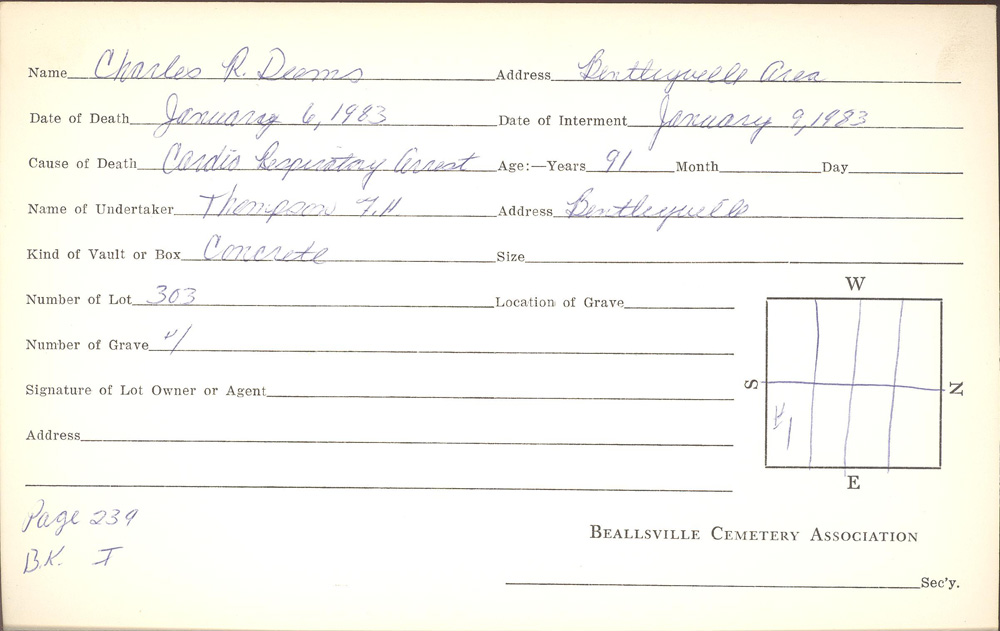 Name Charles R. Deems Address Bentleyville Area
Date of Death January 6, 1983 Date of Interment January 9, 1983
Cause of Death Cardio Respiratory Arrest Age:—Years 91 Month Day
Name of Undertaker Thompson F.H Address Bentleyville
Kind of Vault or Box Concrete Size
Number of Lot 303 Location of Grave
Number of Grave #1
Signature of Lot Owner or Agent
Address
W
S
N
#1
E
Page 239
B.K. I
BEALLSVILLE CEMETERY ASSOCIATION
Sec'y.